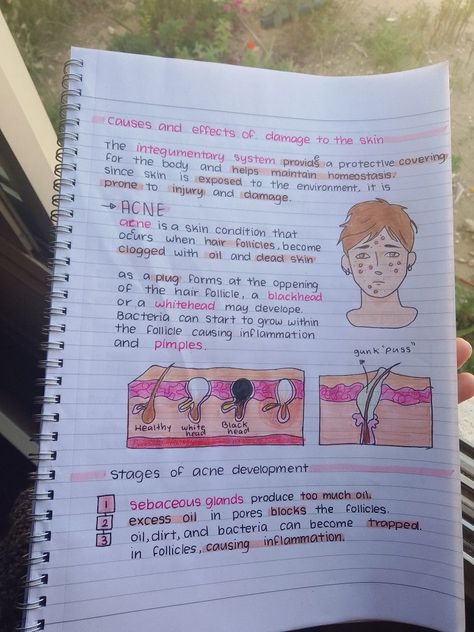 Causes and effects of damage to the skin
The integumentary system provides a protective covering
for the body and helps maintain homeostasis.
since skin is exposed to the environment, it is
prone to injury and damage.
→ ACNE
acne is a skin condition that
occurs when hair follicles, become
clogged with oil and dead skin
as a plug forms at the oppening
of the hair follicle, a blackhead
or a whitehead may develope.
Bacteria can start to grow within
the follicle causing inflammation
and pimples.
gunk "puss"
Healthy
white head
Black head
Stages of acne development
1 sebaceous glands produce too much oil.
2 excess oil in pores blocks the follicles.
3 oil, dirt, and bacteria can become trapped.
in follicles, causing inflammation.